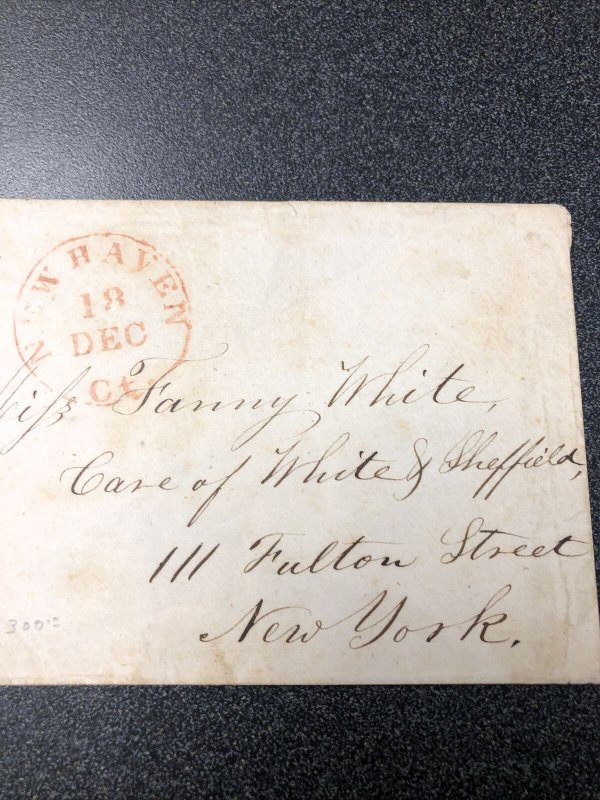 NEW HAVEN
18
DEC
Ct.
Miss Fanny White,
Care of White & Sheffield,
111 Fulton Street
New York.
300.